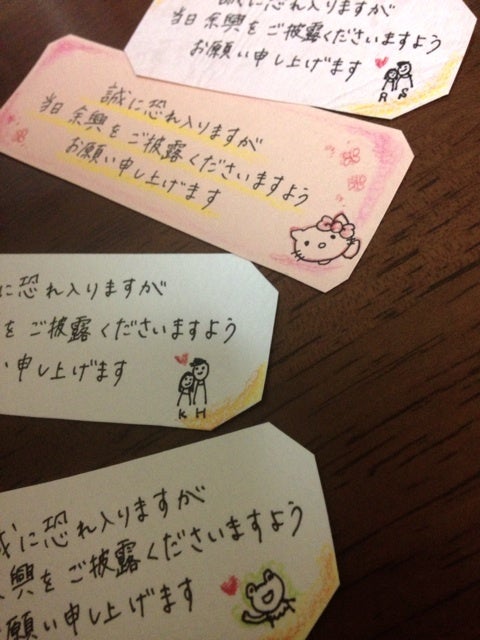 誠に恐れ入りますが
当日余興をご披露くださいますよう
お願い申し上げます
R S
誠に恐れ入りますが
当日余興をご披露くださいますよう
お願い申し上げます
に恐れ入りますが
をご披露くださいますよう
い申し上げます
K H
誠に恐れ入りますが
興をご披露くださいますよう
お願い申し上げます